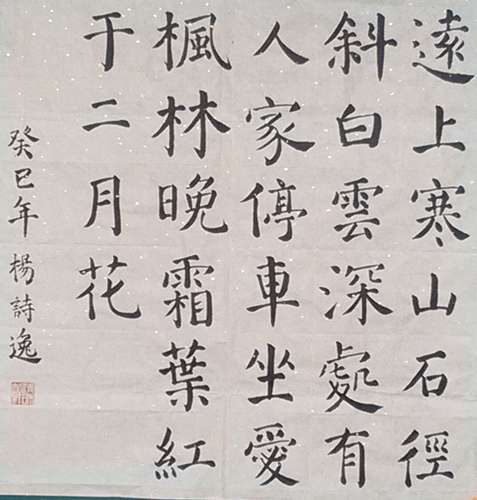 遠上寒山石徑
斜白雲深處有
人家停車坐愛
楓林晚霜葉紅
于二月花
癸巳年楊詩逸